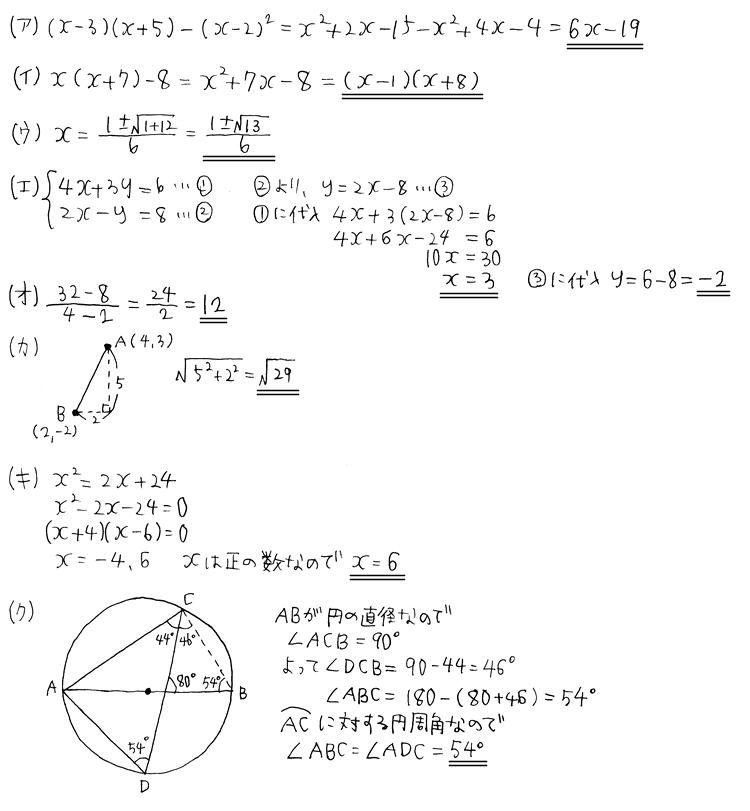 (ア) (x-3)(x+5)-(x-2)²=x²+2x-15-x²+4x-4=6x-19
(イ) x(x+7)-8=x²+7x-8=(x-1)(x+8)
(ウ) x=\frac{1±√(1+12)}{6}=\frac{1±√13}{6}
(エ) {4x+3y=6…① ②より、y=2x-8…③
2x-y=8…② ①に代入 4x+3(2x-8)=6
4x+6x-24=6
10x=30
x=3 ③に代入 y=6-8=-2
(オ) \frac{32-8}{4-2}=\frac{24}{2}=12
(カ) A(4,3)
√(5²+2²)=√29
5
B 2
(2,-2)
(キ) x²=2x+24
x²-2x-24=0
(x+4)(x-6)=0
x=-4,6 xは正の数なので x=6
(ク) C
44° 46°
A 80° 54° B
54°
D
ABが円の直径なので
∠ACB=90°
よって∠DCB=90-44=46°
∠ABC=180-(80+46)=54°
⌒ACに対する円周角なので
∠ABC=∠ADC=54°